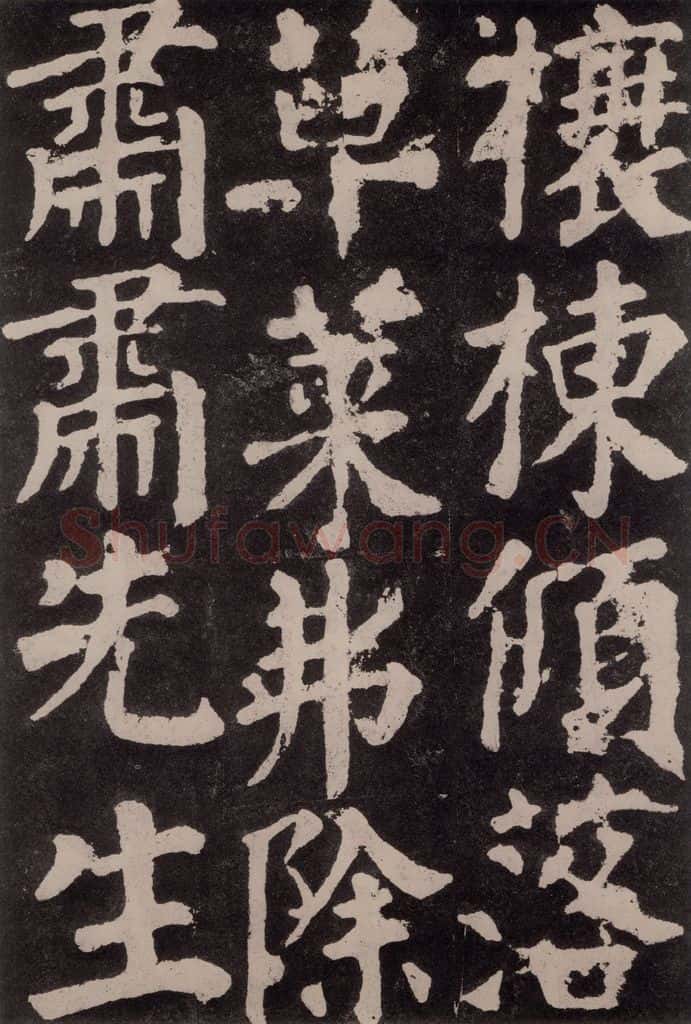 榱棟傾落
草萊弗除
肅肅先生
Shufawang.CN